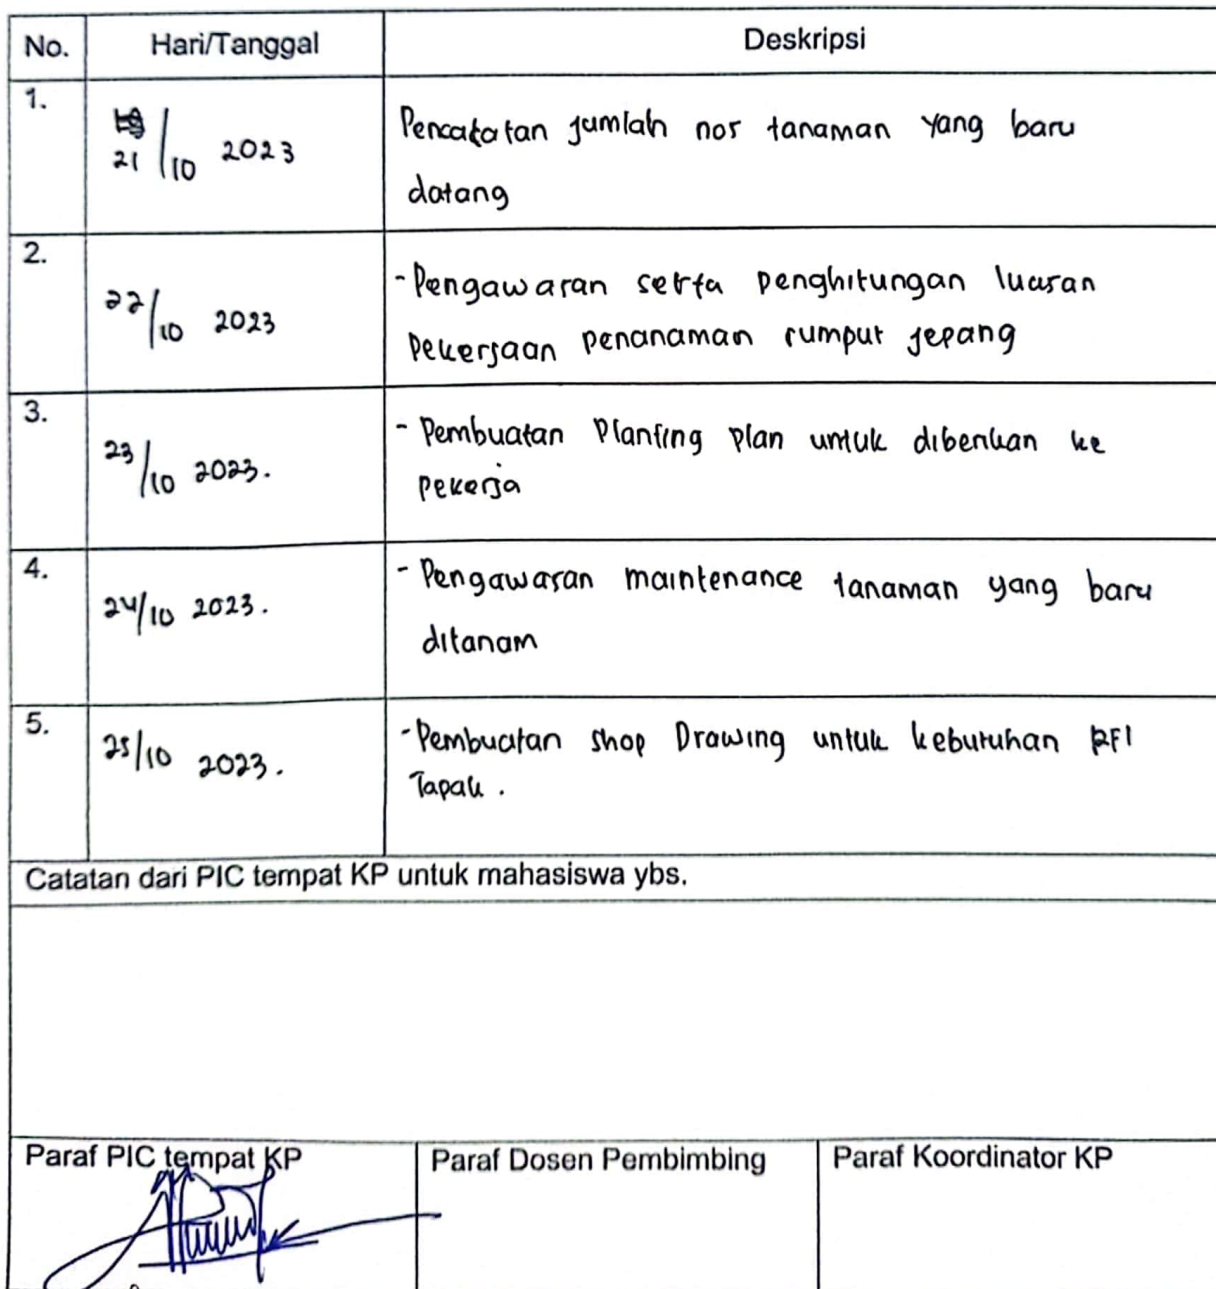 No. Hari/Tanggal Deskripsi
1. 21/10 2023 Pencatatan jumlah nos tanaman yang baru
datang
2. 22/10 2023 - Pengawasan serta penghitungan luasan
pekerjaan penanaman rumput jepang
3. 23/10 2023. - Pembuatan Planting plan untuk diberikan ke
pekerja
4. 24/10 2023. - Pengawasan maintenance tanaman yang baru
ditanam
5. 25/10 2023. - Pembuatan shop Drawing untuk kebutuhan RFI
Tapak.
Catatan dari PIC tempat KP untuk mahasiswa ybs.
Paraf PIC tempat KP Paraf Dosen Pembimbing Paraf Koordinator KP